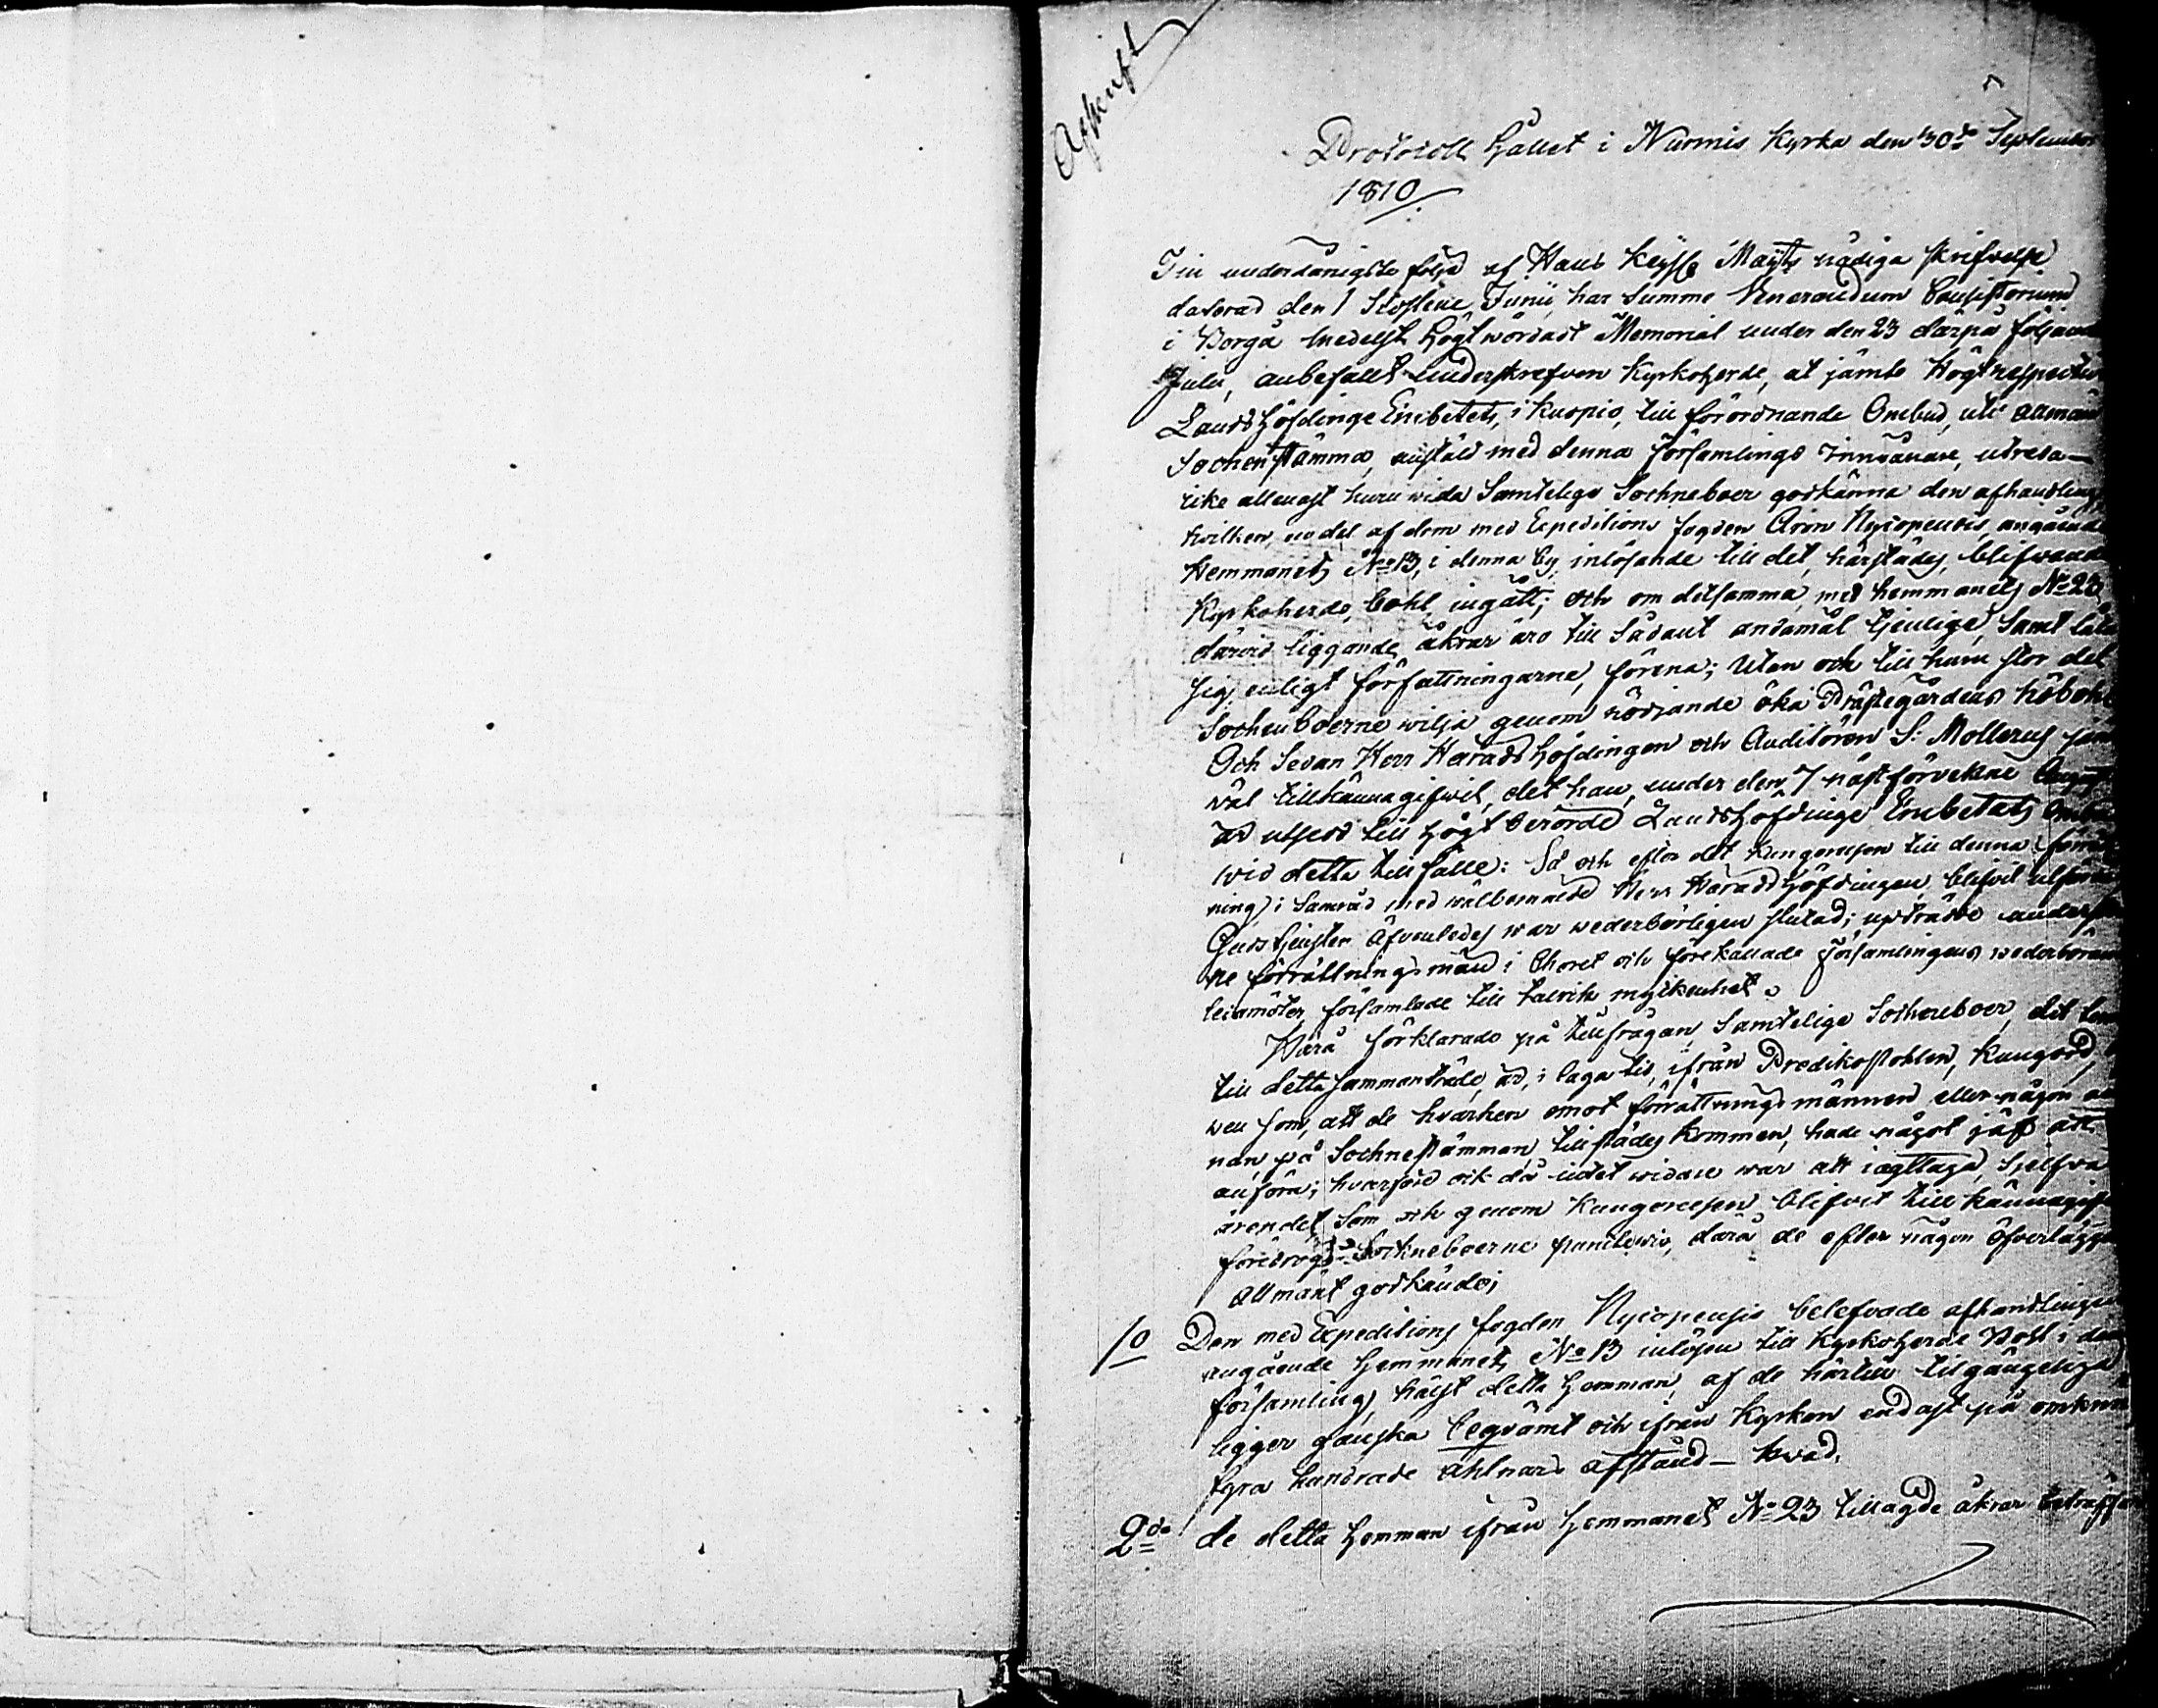 Afskrift
Protocoll hållet i Nurmis Kyrka den 30de September
1810
I in underdånigste följd af Hans Keijss Maijts nådiga skrifvelse
daterad den 1 Sistlidne Junii, har Summe Venerandum Consistorium
i Borgå medelst högtwördadt Memorial under den 23 därpå följande
Julii, anbefallt underskrefven Kyrkoherde, at jämte Högtrespective
LandsHöfdinge Embetets, i Kuopio, till förordnande Ombud, uti allmän
Sochnestämma, anstäld med denna Församlings Innevånare, utreda
icke allenast huru wida Samtelige Sochneboer godkänna den afhandling,
hvilken, en del af dem med Expeditions fogden Aron Nycopensis, angående
Hemmanets No 13, i denna by, inlösande till det, härstädes, blifwande
Kyrkoherde Bohl, ingått; och om detsamma, med hemmanets No 23,
därvid liggande, åkrar äro till Sådant ändamål tjenlige, Samt låta
sig, enligt författningarne, förena; Utan och till huru stor del
Sochneboerne wilja genom rödjande öka Prästegårdens
Och Sedan Herr HäradsHöfdingen och Auditören S. Mollerus
väl tillkännagifvit, det han, under den 7 nästförvekne August
är utsedd till högt berörde LandsHöfdinge Embetets Ombud
wid detta tillfälle: Så och efter det kungörelsen till denna förrätt-
ning, i Samråd med wälbemälde Herr HäradsHöfdingen blifvit utfärdad
Gudstjensten äfvenledes war wederbörligen slutad; upträdde
ne förrättningsmän i Choret och förekallade Församlingens wederbörande
ledamöter, församlade till talrik myckenhet.
Härå förklarade på tillfrågan, Samtelige Sochneboer, det
till detta sammanträde, är, i laga tid, ifrån Predikostohlen, kungörd,
wen som, att de hvarken emot förrättningsmännen eller någon an
nan, på Sochnestämman, tillstädes kommen, hade något jäf att
anföra; hvarföre och då intet widare war att iagttaga, Sjelfva
ärendet, Som och genom Kungörelsen blifvit till känna gifvit
föredrogs Sochneboerne punctewis, därå de efter någon öfverläggning
Allmänt godkände;
1o Den med Expeditions fogden Nycopensis belefvade afhandlingen
angående Hemmanets No 13 inlösen till Kyrkoherde Bohl i denna
församling, hälst detta Hemman, af de härtill tilgängeliga,
ligger ganska beqvämt och ifrån Kyrkan endast på omkring
fyra hundrade ahlnars afstånd – hvad,
2do de detta Hemman ifrån Hemmanet No 23 tillagde åkrar beträffar